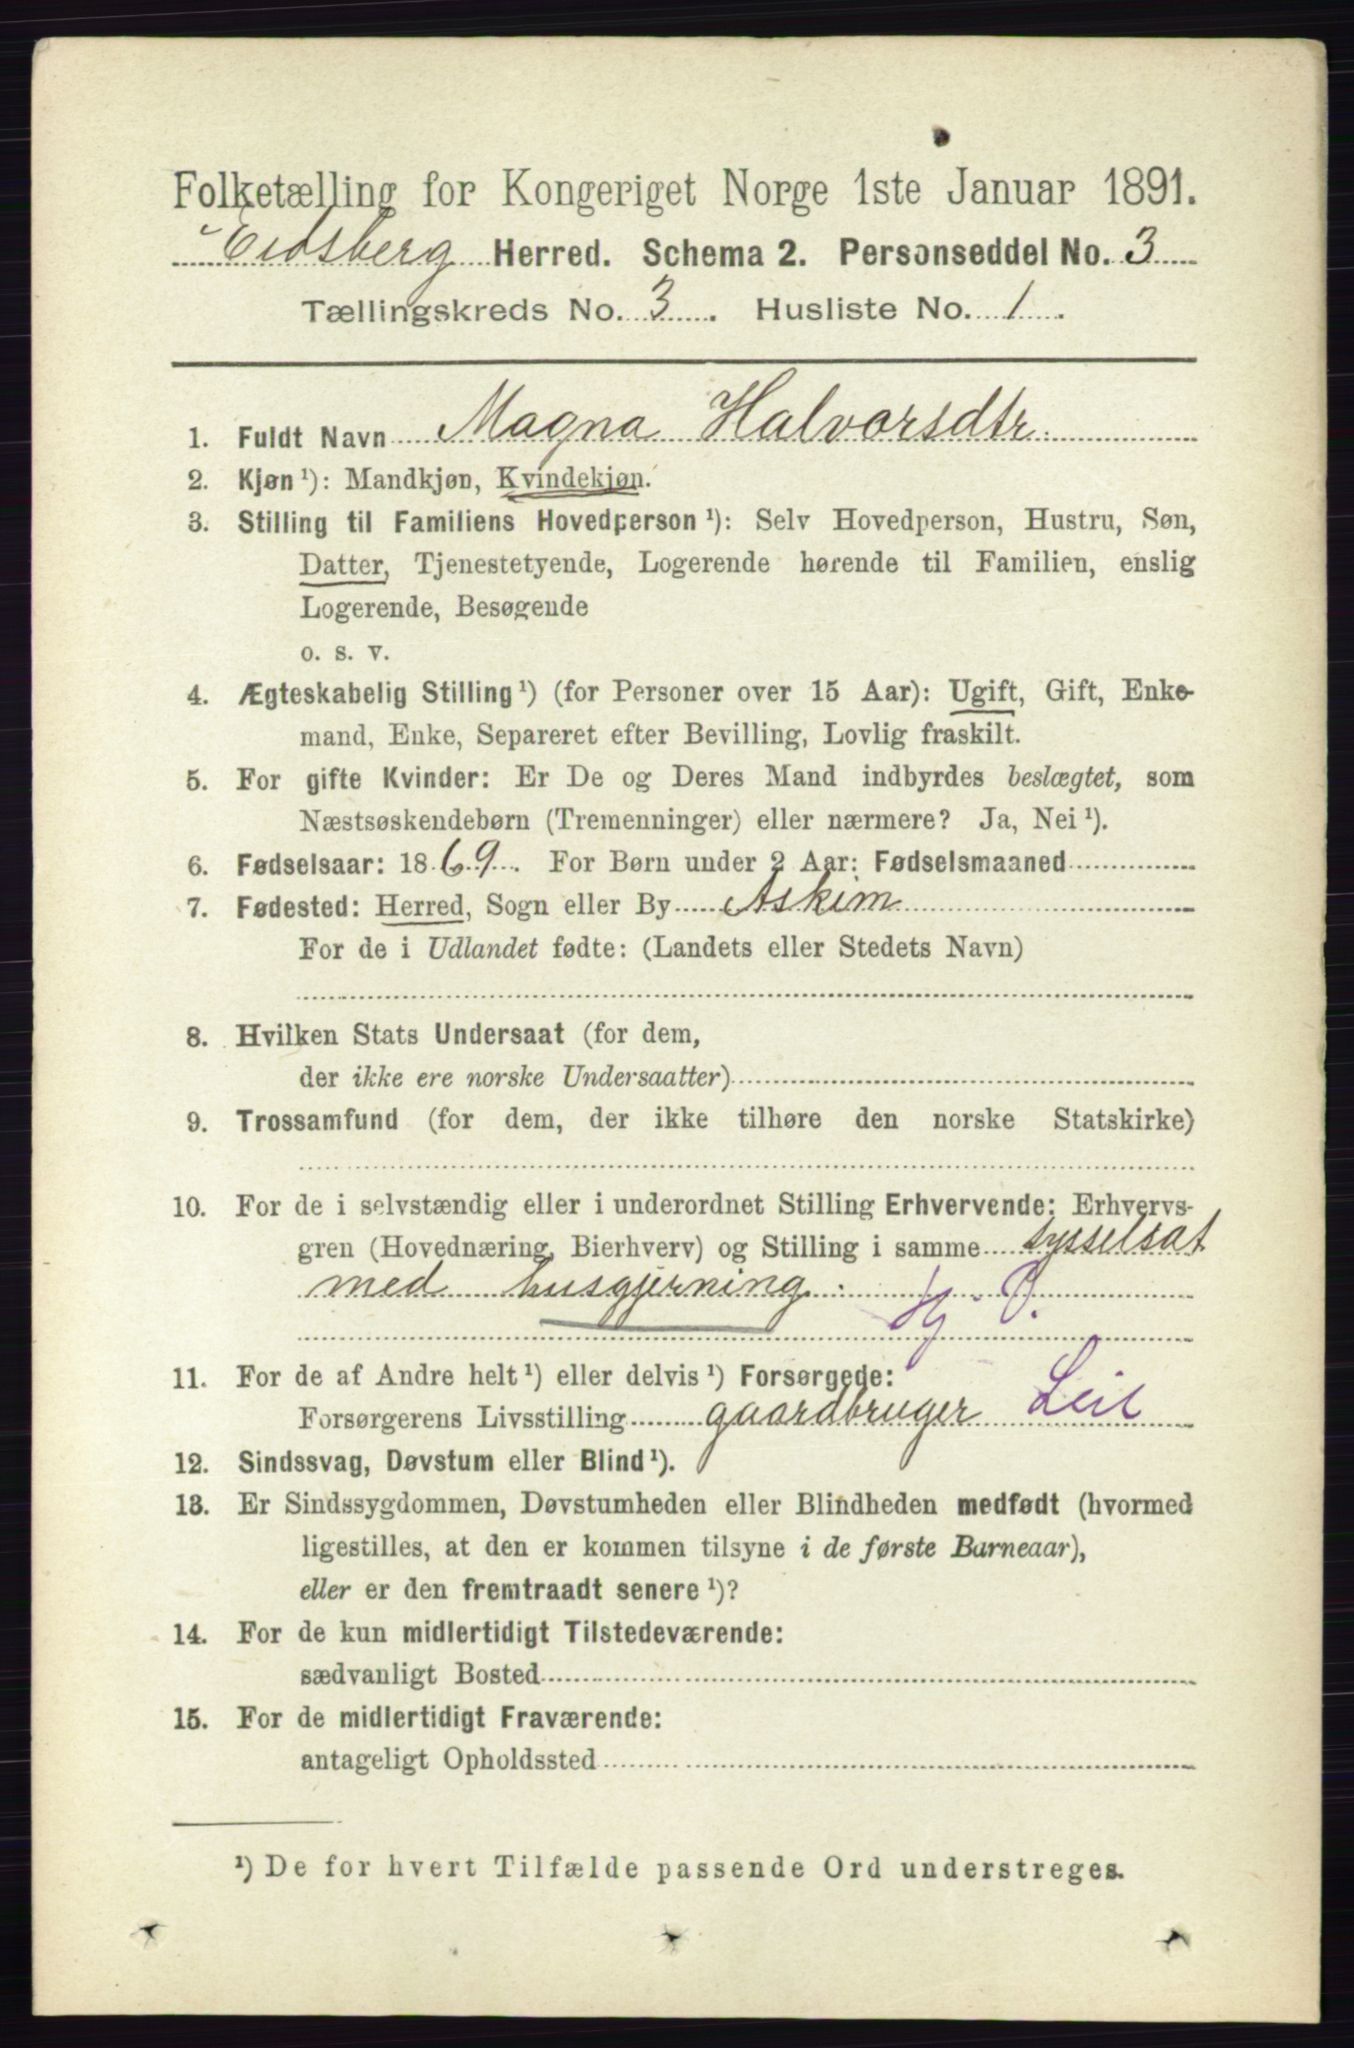 Folketælling for Kongeriget Norge 1ste Januar 1891.
Eidsberg Herred. Schema 2. Personseddel No. 3
Tællingskreds No. 3. Husliste No. 1.
1. Fuldt Navn Magna Halvorsdtr.
2. Kjøn ¹): Mandkjøn, Kvindekjøn.
3. Stilling til Familiens Hovedperson ¹): Selv Hovedperson, Hustru, Søn,
Datter, Tjenestetyende, Logerende hørende til Familien, enslig
Logerende, Besøgende
o. s. v.
4. Ægteskabelig Stilling ¹) (for Personer over 15 Aar): Ugift, Gift, Enke-
mand, Enke, Separeret efter Bevilling, Lovlig fraskilt.
5. For gifte Kvinder: Er De og Deres Mand indbyrdes beslægtet, som
Næstsøskendebørn (Tremenninger) eller nærmere? Ja, Nei ¹).
6. Fødselsaar: 1869. For Børn under 2 Aar: Fødselsmaaned
7. Fødested: Herred, Sogn eller By Askim
For de i Udlandet fødte: (Landets eller Stedets Navn)
8. Hvilken Stats Undersaat (for dem,
der ikke ere norske Undersaatter)
9. Trossamfund (for dem, der ikke tilhøre den norske Statskirke)
10. For de i selvstændig eller i underordnet Stilling Erhvervende: Erhvervs-
gren (Hovednæring, Bierhverv) og Stilling i samme sysselsat
med husgjerning.
11. For de af Andre helt ¹) eller delvis ¹) Forsørgede:
Forsørgerens Livsstilling gaardbruger Leil
12. Sindssvag, Døvstum eller Blind ¹).
13. Er Sindssygdommen, Døvstumheden eller Blindheden medfødt (hvormed
ligestilles, at den er kommen tilsyne i de første Barneaar),
eller er den fremtraadt senere ¹)?
14. For de kun midlertidigt Tilstedeværende:
sædvanligt Bosted
15. For de midlertidigt Fraværende:
antageligt Opholdssted
¹) De for hvert Tilfælde passende Ord understreges.